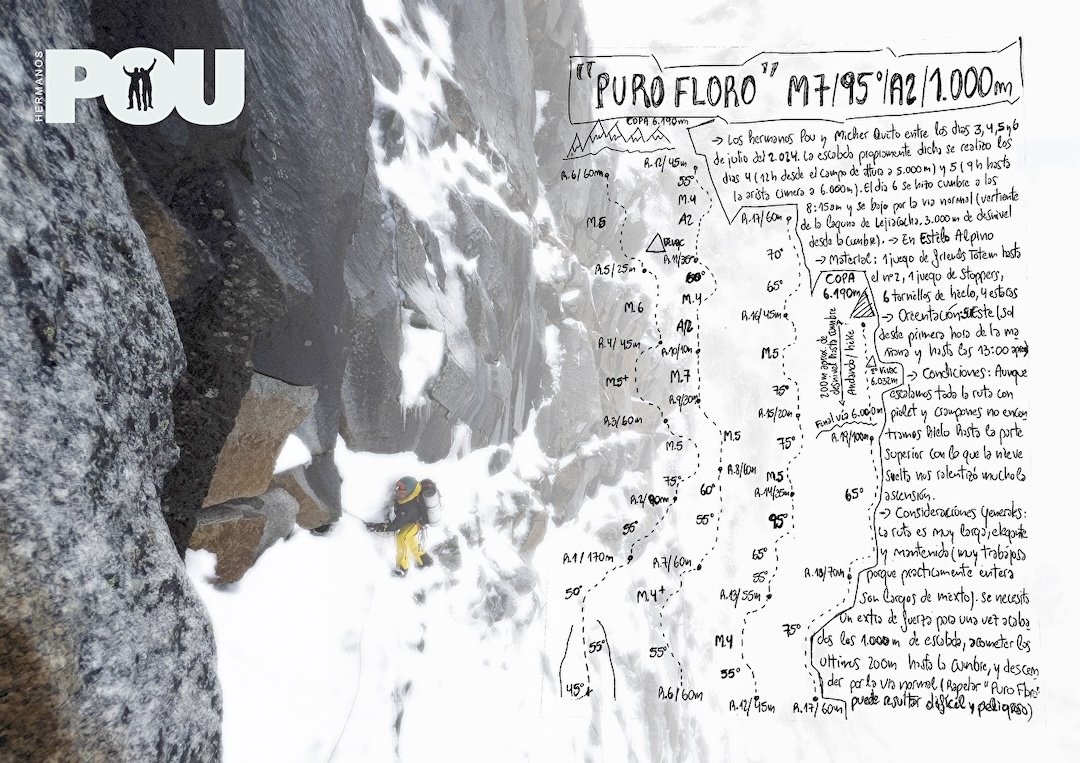 HERMANOS
POU
"PURO FLORO" M7/95°/A2/1.000m
COPA 6.190m
→ Los hermanos Pou y Micher Quito entre los días 3, 4, 5 y 6
de julio del 2.024. La escalada propiamente dicha se realizo los
días 4 (12h desde el campo de altura a 5.000m) y 5 (9h hasta
la arista cimera a 6.000m). El día 6 se hizo cumbre a las
8:15am y se bajo por la vía normal (vertiente
de la laguna de Lejiacocha, 3.000m de desnivel
desde la cumbre). → En Estilo Alpino
→ Material: 1 juego de friends Totem hasta
el nº2, 1 juego de stoppers,
6 tornillos de hielo, 4 estacas
→ Orientación: SUEste (sol
desde primera hora de la ma
ñana y hasta las 13:00 aprox)
→ Condiciones: Aunque
escalamos toda la ruta con
piolet y crampones no encon
tramos hielo hasta la parte
superior con lo que la nieve
suelta nos ralentizó mucho la
ascensión.
→ Consideraciones generales:
La ruta es muy larga, elegante
y mantenida (muy trabajosa
porque practicamente entera
son largos de mixto). Se necesita
un extra de fuerza para una vez acaba
dos los 1.000m de escalada, acometer los
ultimos 200m hasta la cumbre, y descen
der por la vía normal (Rapelar "Puro Floro"
puede resultar difícil y peligroso)
R.6/60m
M.5
R.5/25m
M.6
R.4/45m
M.5+
R.3/60m
M.5
75°
R.2/80m
55°
R.1/170m
50°
55°
45°
R.12/45m
55°
M.4
A2
VIVAC
R.11/35m
60°
M.4
A2
R.10/10m
M.7
R.9/30m
M.5
R.8/60m
60°
55°
R.7/60m
M.4+
55°
R.6/60m
R.17/60m
70°
65°
R.16/45m
M.5
75°
R.15/20m
75°
M.5
R.14/35m
95°
65°
55°
R.13/55m
M.4
55°
R.12/45m
COPA
6.190m
200m aprox. de
desnivel hasta cumbre
Andando/hike
VIVAC
6.032m
Final vía 6.000m
R.19/100m
65°
R.18/70m
75°
R.17/60m